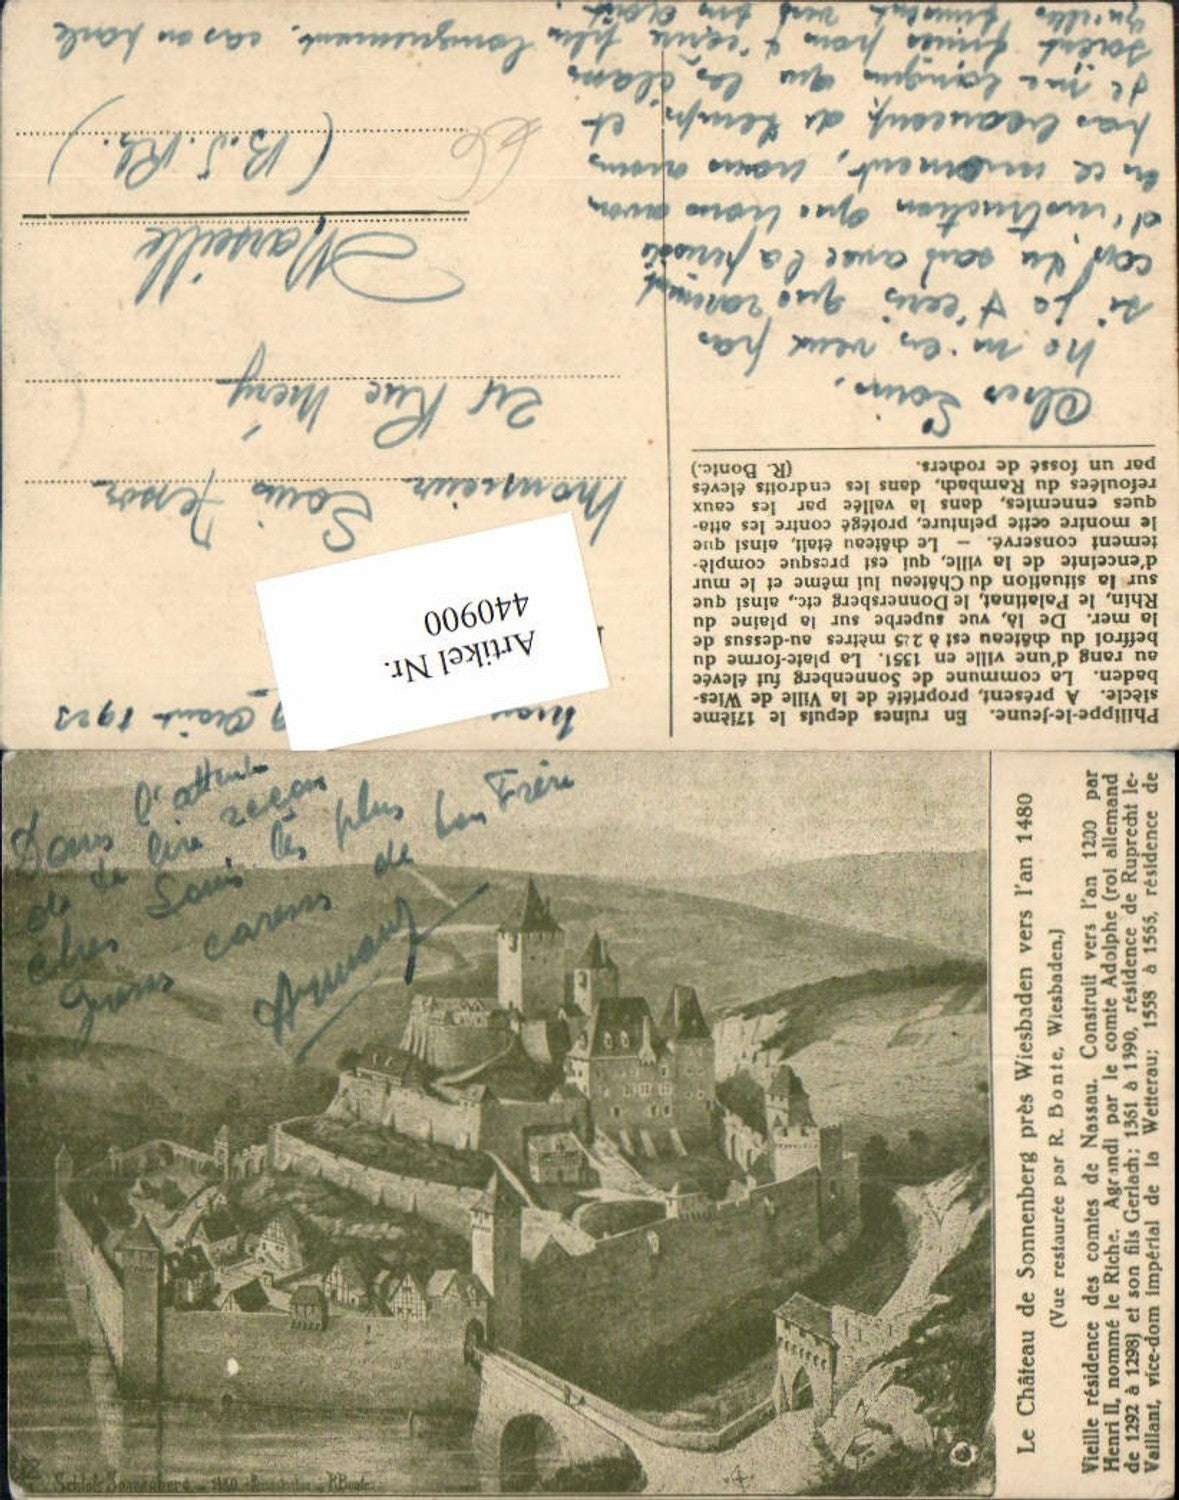 Philippe-le-Jeune. En ruines depuis le 17ième
siècle. A présent, propriété de la Ville de Wies-
baden. La commune de Sonnenberg fut élevée
au rang d'une ville en 1351. La plate-forme du
beffroi du château est à 225 mètres au-dessus de
la mer. De là, vue superbe sur la plaine du
Rhin, le Palatinat, le Donnersberg etc., ainsi que
sur la situation du Château lui même et le mur
d'enceinte de la ville, qui est presque complè-
tement conservé. — Le château était, ainsi que
le montre cette peinture, protégé contre les atta-
ques ennemies, dans la vallée par les eaux
refoulées du Rambach, dans les endroits élevés
par un fossé de rochers. (R. Bonte.)
Cher Louis,
ne m'en veux pas
si je t'écris que rarement
car, du
d'instruction que nous avons
en ce moment, nous avons
pas beaucoup de temps, et
je me que les
soient finies pour t'écrire plus longuement, car on parle
qu'elles finiront vers fin août.
Août 1923
Artikel Nr.
440900
Monsieur Louis
21 Rue Méry
Marseille
(B. d. Rh.)
Dans l'attente
de te lire reçois
cher Louis les plus
gros de ton Frère
Schloß Sonnenberg 1480 R. Bonte
Le Château de Sonnenberg près Wiesbaden vers l'an 1480
(Vue restaurée par R. Bonte, Wiesbaden.)
Vieille résidence des comtes de Nassau. Construit vers l'an 1200 par
Henri II, nommé le Riche. Agrandi par le comte Adolphe (roi allemand
de 1292 à 1298) et son fils Gerlach; 1361 à 1390, résidence de Ruprecht le-
Vaillant, vice-dom impérial de la Wetterau; 1558 à 1566, résidence de